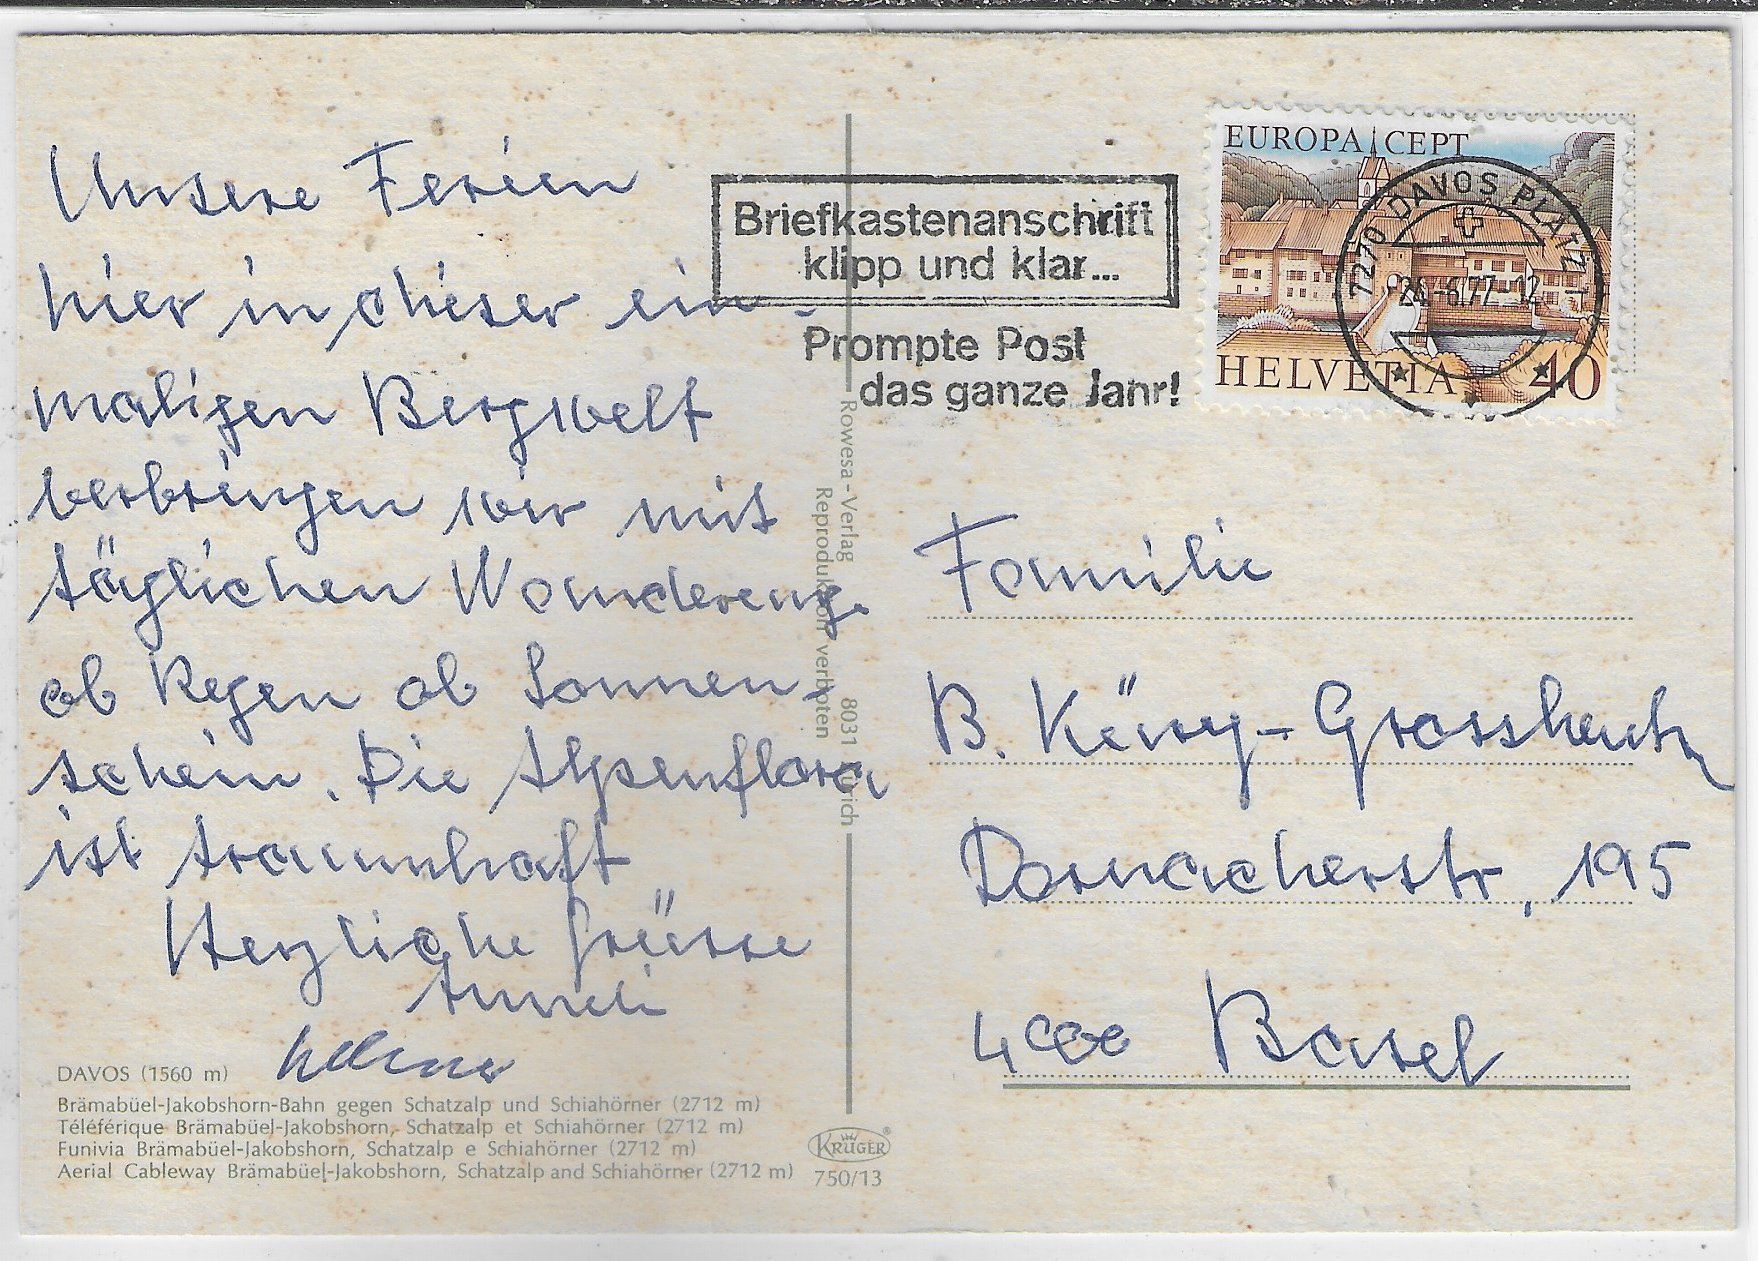 Unsere Ferien
hier in dieser ein-
maligen Bergwelt
verbringen wir mit
täglichen Wanderung.
ob Regen ob Sonnen-
schein. Die Alpenflora
ist traumhaft
Herzliche Grüsse
Anneli
DAVOS (1560 m)
Brämabüel-Jakobshorn-Bahn gegen Schatzalp und Schiahörner (2712 m)
Téléférique Brämabüel-Jakobshorn, Schatzalp et Schiahörner (2712 m)
Funivia Brämabüel-Jakobshorn, Schatzalp e Schiahörner (2712 m)
Aerial Cableway Brämabüel-Jakobshorn, Schatzalp and Schiahörner (2712 m)
KRÜGER
750/13
Rowesa-Verlag 8031 Zürich
Reproduktion verboten
Briefkastenanschrift
klipp und klar...
Prompte Post
das ganze Jahr!
EUROPA CEPT
HELVETIA 40
7270 DAVOS PLATZ 1
-6.77-12
Familie
B. Küng-Grossheutz
Dornacherstr, 195
4000 Basel